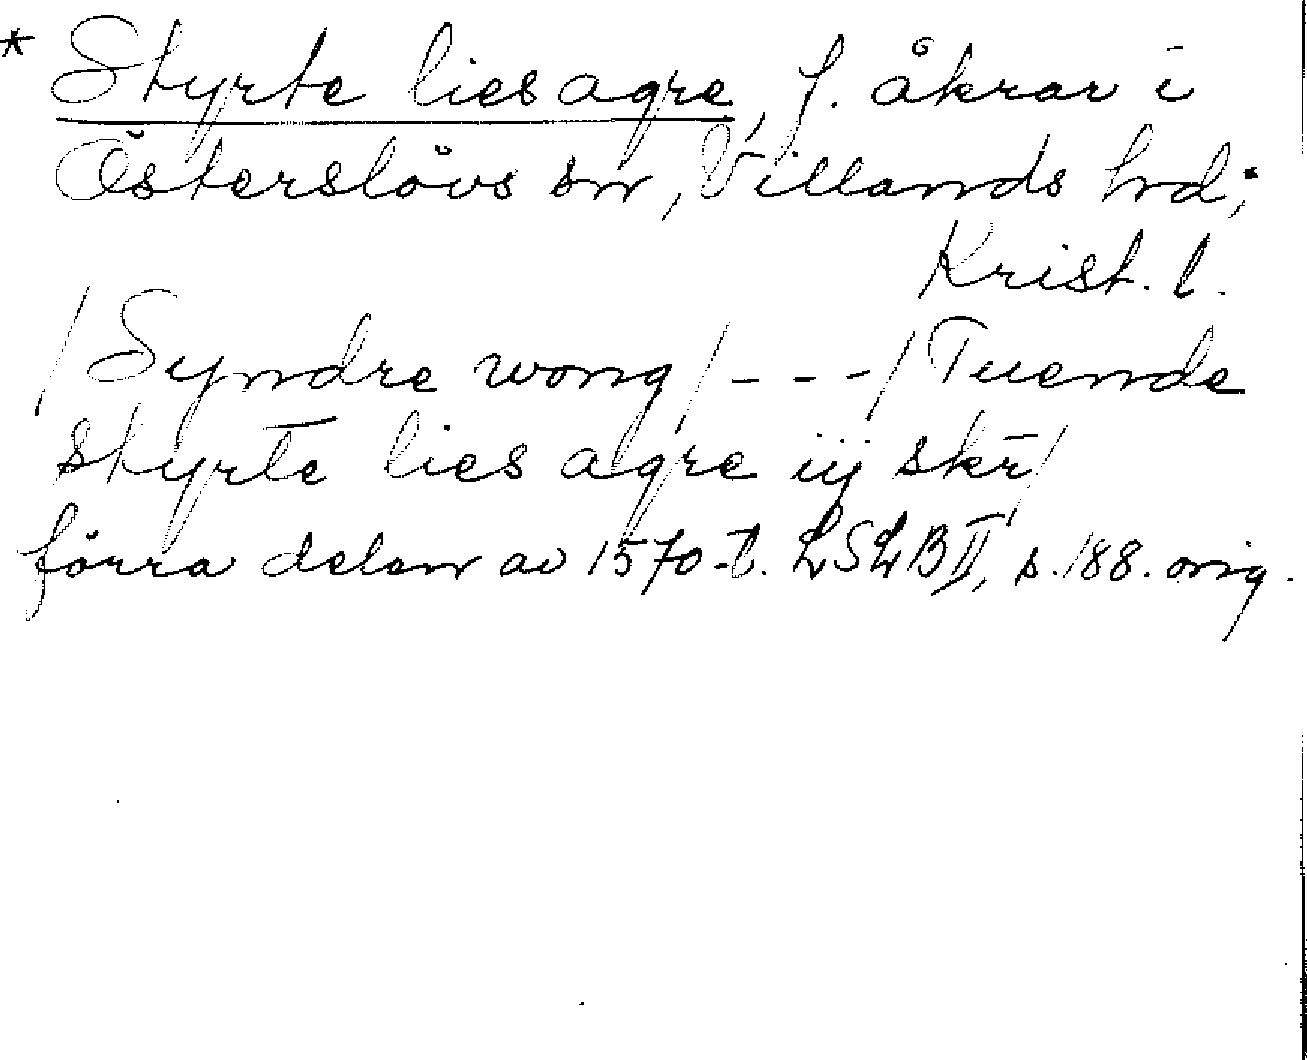 * Styrte lies agre, f. åkrar i
Österslövs sn, Villands hd;
Krist. l.
/Syndre wong/---/Tuende
styrte lies agre iij skr̄/
förra delen av 1570-t. LSLB II, s. 188. orig.